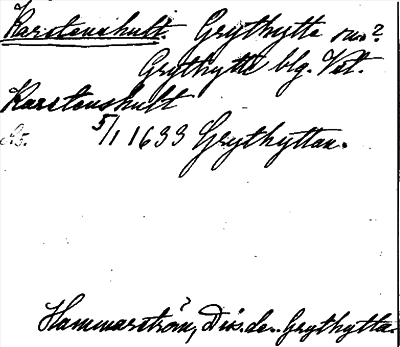 Karstenshult. Grythytte sn?
Grythytte blg. Vst.
Karstenshult
5/1 1633 Grythyttan.
Hammarström, Dis. den Grythytta.